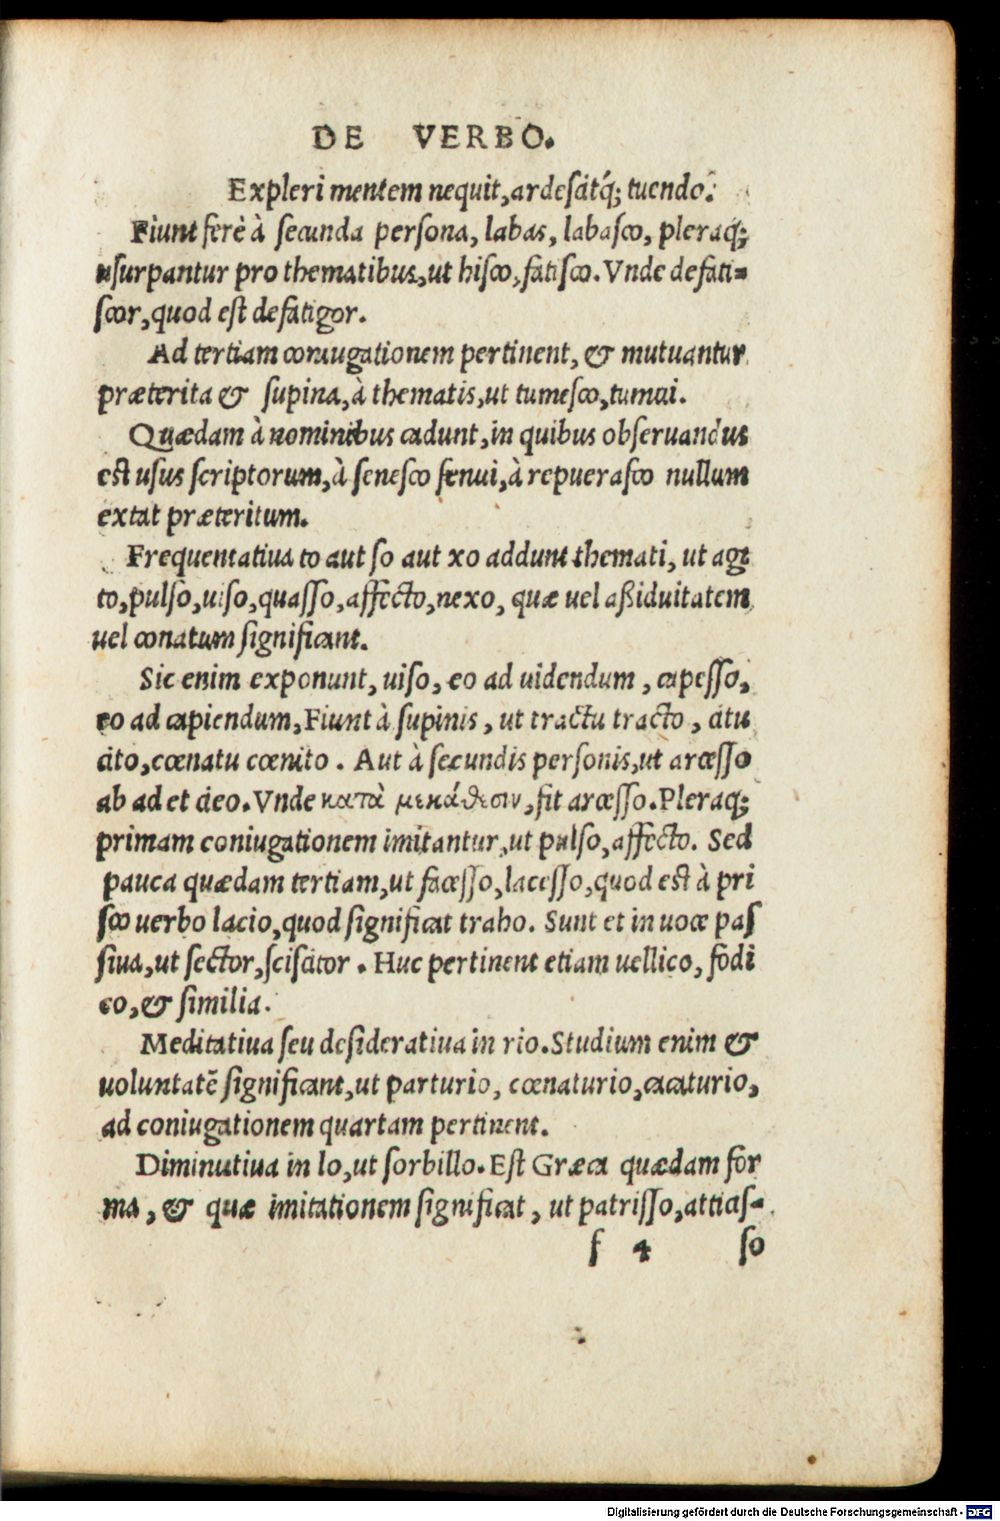 DE VERBO.
Expleri mentem nequit, ardescitq́; tuendo.
Fiunt ferè à secunda persona, labas, labasco, pleraq;
usurpantur pro thematibus, ut hisco, fatisco. Vnde defati-
scor, quod est defatigor.
Ad tertiam coniugationem pertinent, & mutuantur
præterita & supina, à thematis, ut tumesco, tumui.
Quædam à nominibus cadunt, in quibus obseruandus
est usus scriptorum, à senesco senui, à repuerasco nullum
extat præteritum.
Frequentatiua to aut so aut xo addunt themati, ut agi
to, pulso, uiso, quasso, affecto, nexo, quæ uel aßiduitatem
uel conatum significant.
Sic enim exponunt, uiso, eo ad uidendum, capesso,
eo ad capiendum, Fiunt à supinis, ut tractu tracto, citu
cito, cœnatu cœnito. Aut à secundis personis, ut arcesso
ab ad et cieo. Vnde κατὰ μετάθεσιν, fit arcesso. Pleraq;
primam coniugationem imitantur, ut pulso, affecto. Sed
pauca quædam tertiam, ut facesso, lacesso, quod est à pri
sco uerbo lacio, quod significat traho. Sunt et in uoce pas
siua, ut sector, scisitor. Huc pertinent etiam uellico, fodi
co, & similia.
Meditatiua seu desideratiua in rio. Studium enim &
uoluntatē significant, ut parturio, cœnaturio, cacaturio,
ad coniugationem quartam pertinent.
Diminutiua in lo, ut sorbillo. Est Græca quædam for
ma, & quæ imitationem significat, ut patrisso, atticis-
f 4 so
Digitalisierung gefördert durch die Deutsche Forschungsgemeinschaft - DFG